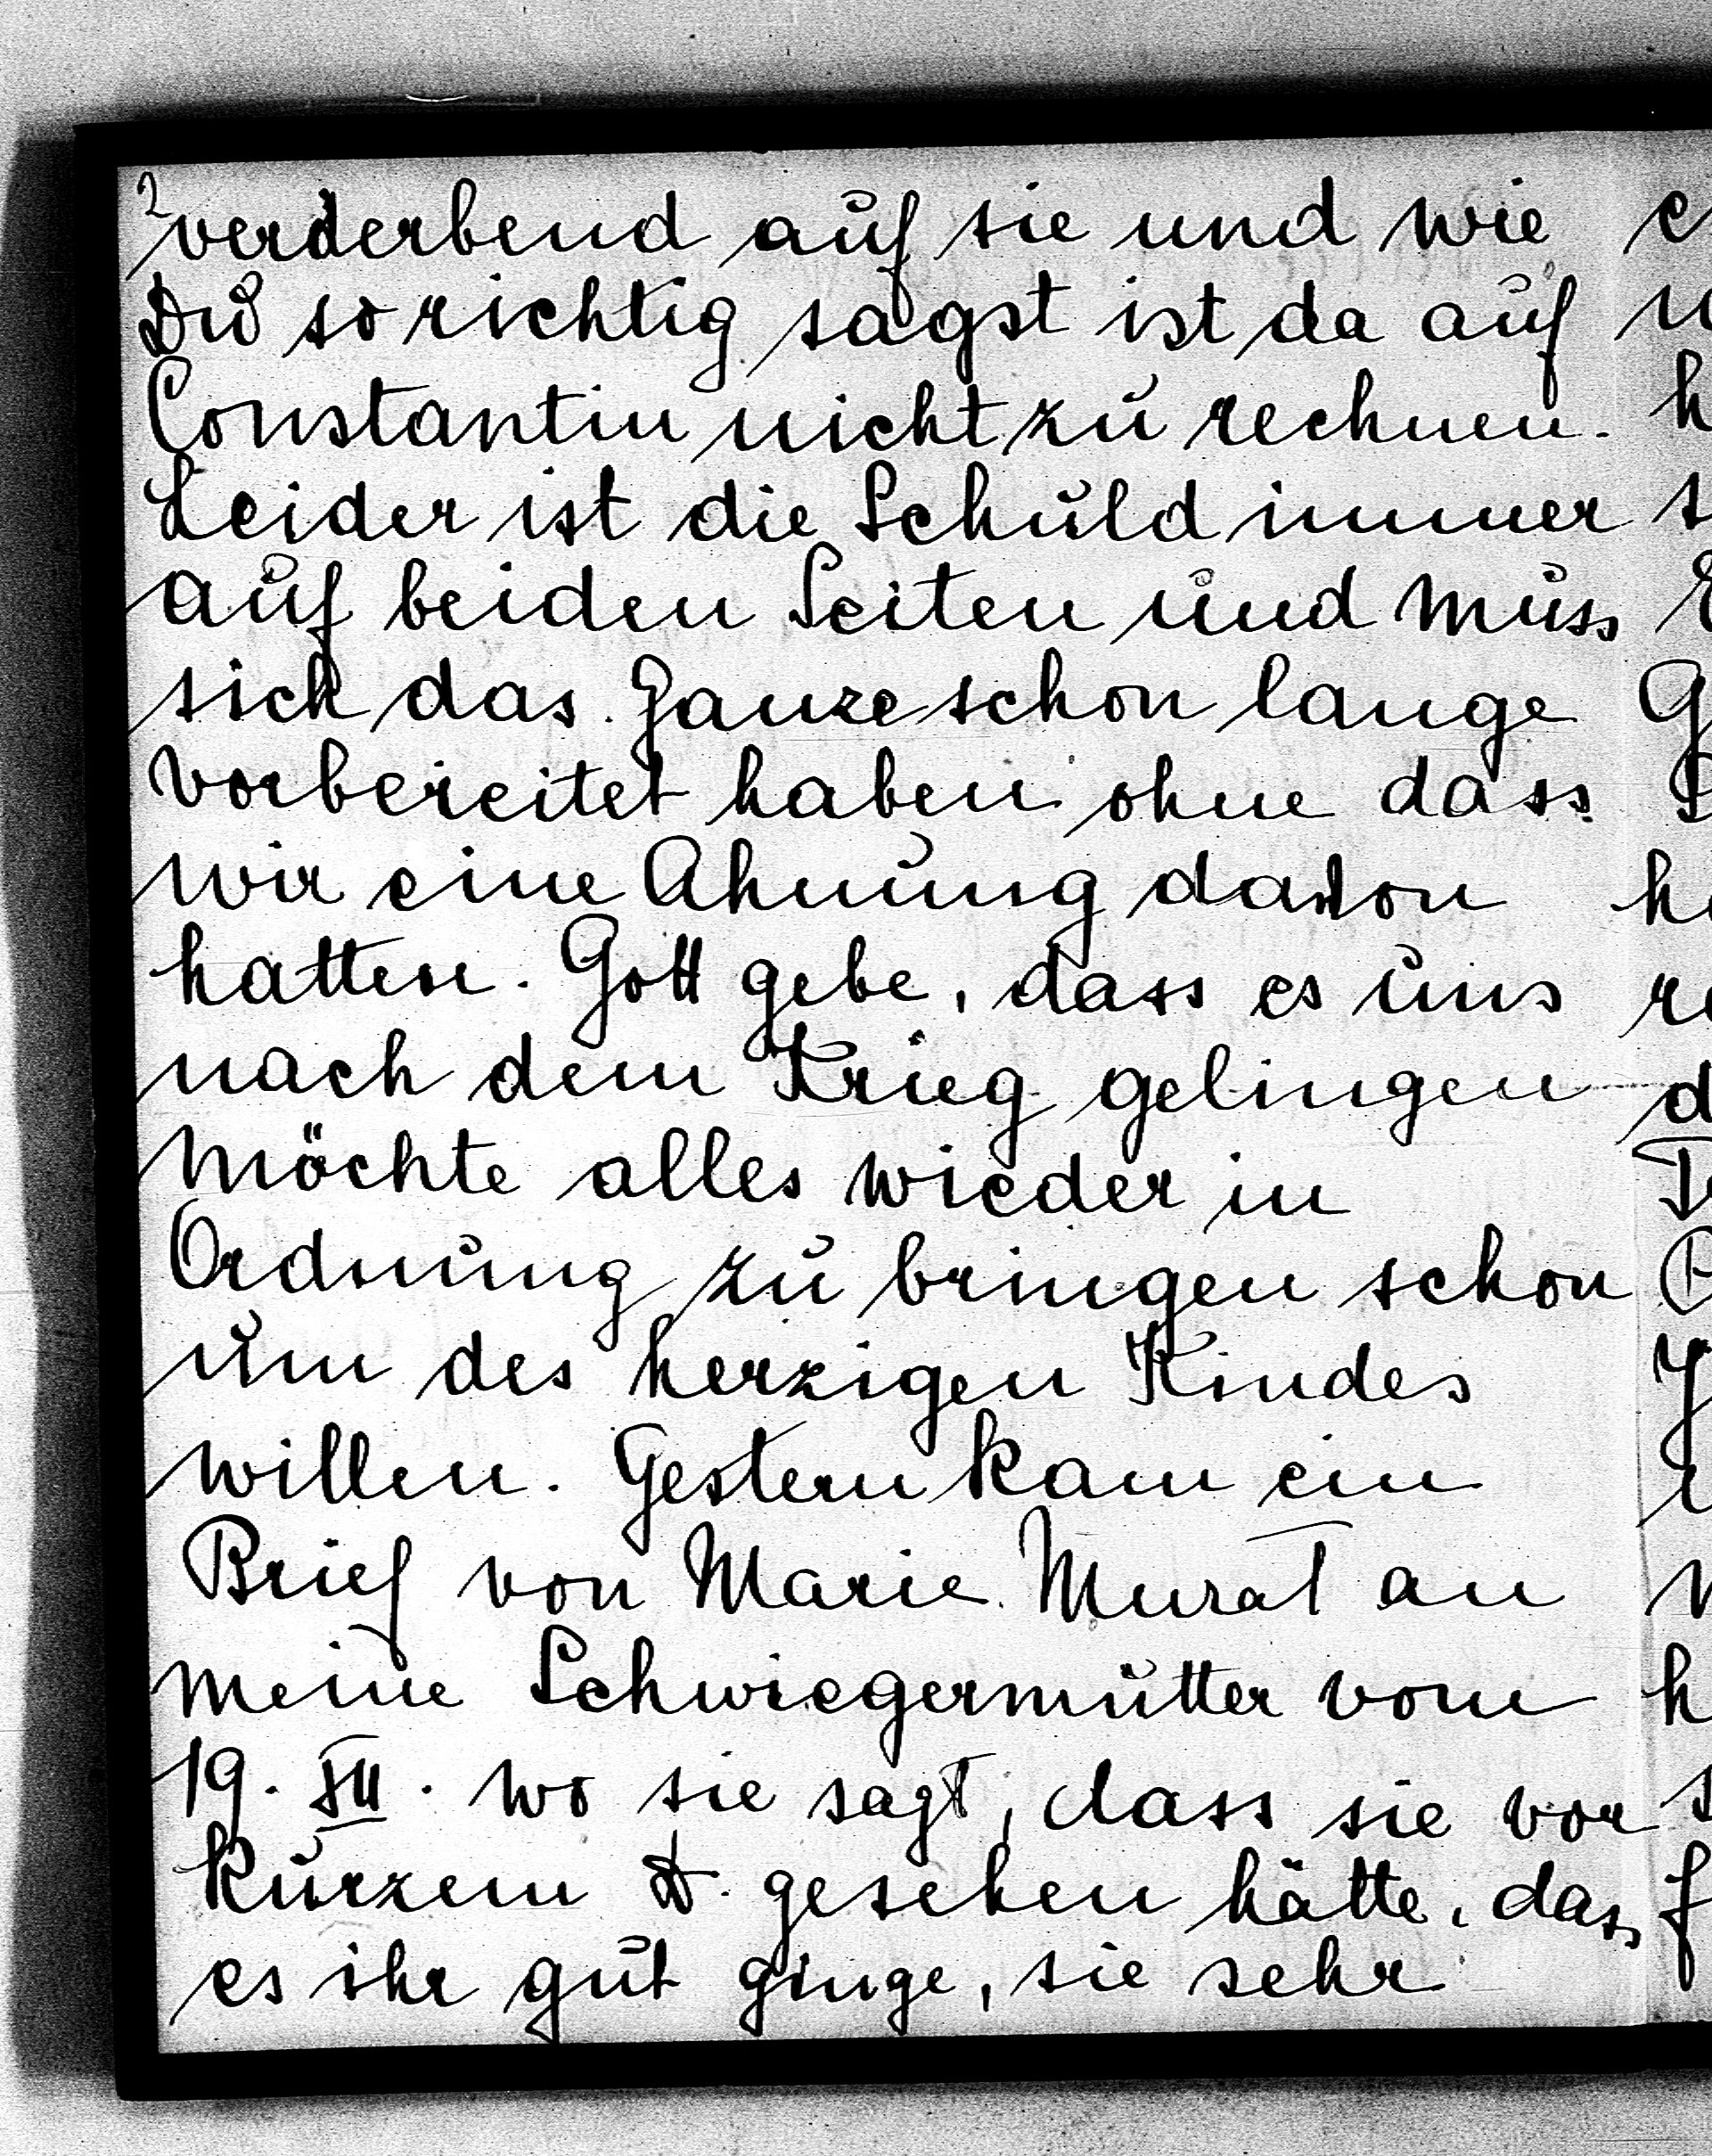 2
verderbend auf sie und wie
Du so richtig sagst ist da auf
Constantin nicht zu rechnen.
Leider ist die Schuld immer
auf beiden Seiten und muss
sich das Ganze schon lange
vorbereitet haben ohne dass
wir eine Ahnung davon
hatten. Gott gebe, dass es uns
nach dem Krieg gelingen
möchte alles wieder in
Ordnung zu bringen schon
um des herzigen Kindes
willen. Gestern kam ein
Brief von Marie Murat an
meine Schwiegermutter vom
19. XII. wo sie sagt, dass sie vor
kurzem A. gesehen hätte, dass
es ihr gut ginge, sie sehr